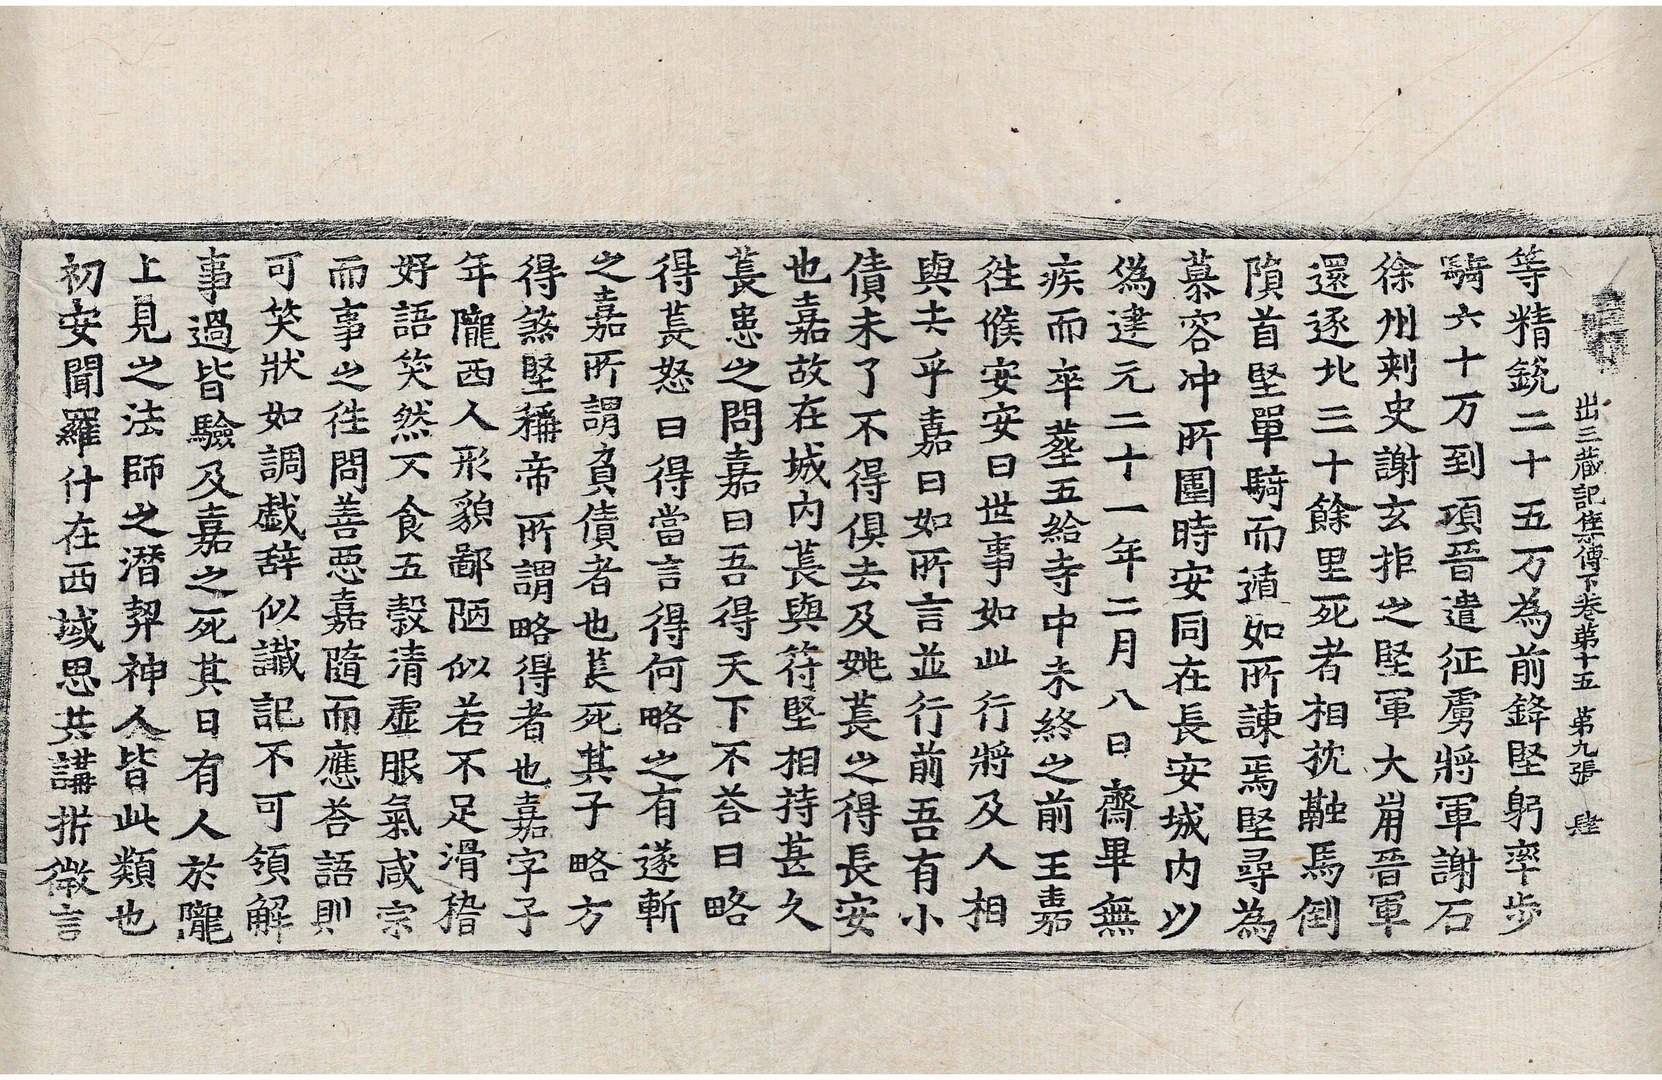 出三蔵記集傳下卷第十五 第九張 肆
等精銳二十五万為前鋒堅躬率步
騎六十万到項晋遣征虜將軍謝石
徐州刾史謝玄拒之堅軍大崩晋軍
還逐北三十餘里死者相枕融馬倒
隕首堅單騎而遁如所諫焉堅尋為
慕容冲所圍時安同在長安城內以
偽建元二十一年二月八日齋畢無
疾而卒葬五給寺中未終之前王嘉
往候安安曰世事如此行將及人相
與去乎嘉曰如所言並行前吾有小
債未了不得俱去及姚萇之得長安
也嘉故在城內萇與符堅相持甚久
萇患之問嘉曰吾得天下不荅曰略
得萇怒曰得當言得何略之有遂斬
之嘉所謂負債者也萇死其子略方
得煞堅稱帝所謂略得者也嘉字子
年隴西人形貌鄙陋似若不足滑稽
好語笑然不食五穀清虛服氣咸宗
而事之往問善惡嘉隨而應荅語則
可笑狀如調戲辞似讖記不可領解
事過皆驗及嘉之死其日有人於隴
上見之法師之潛契神人皆此類也
初安聞羅什在西域思共講析微言